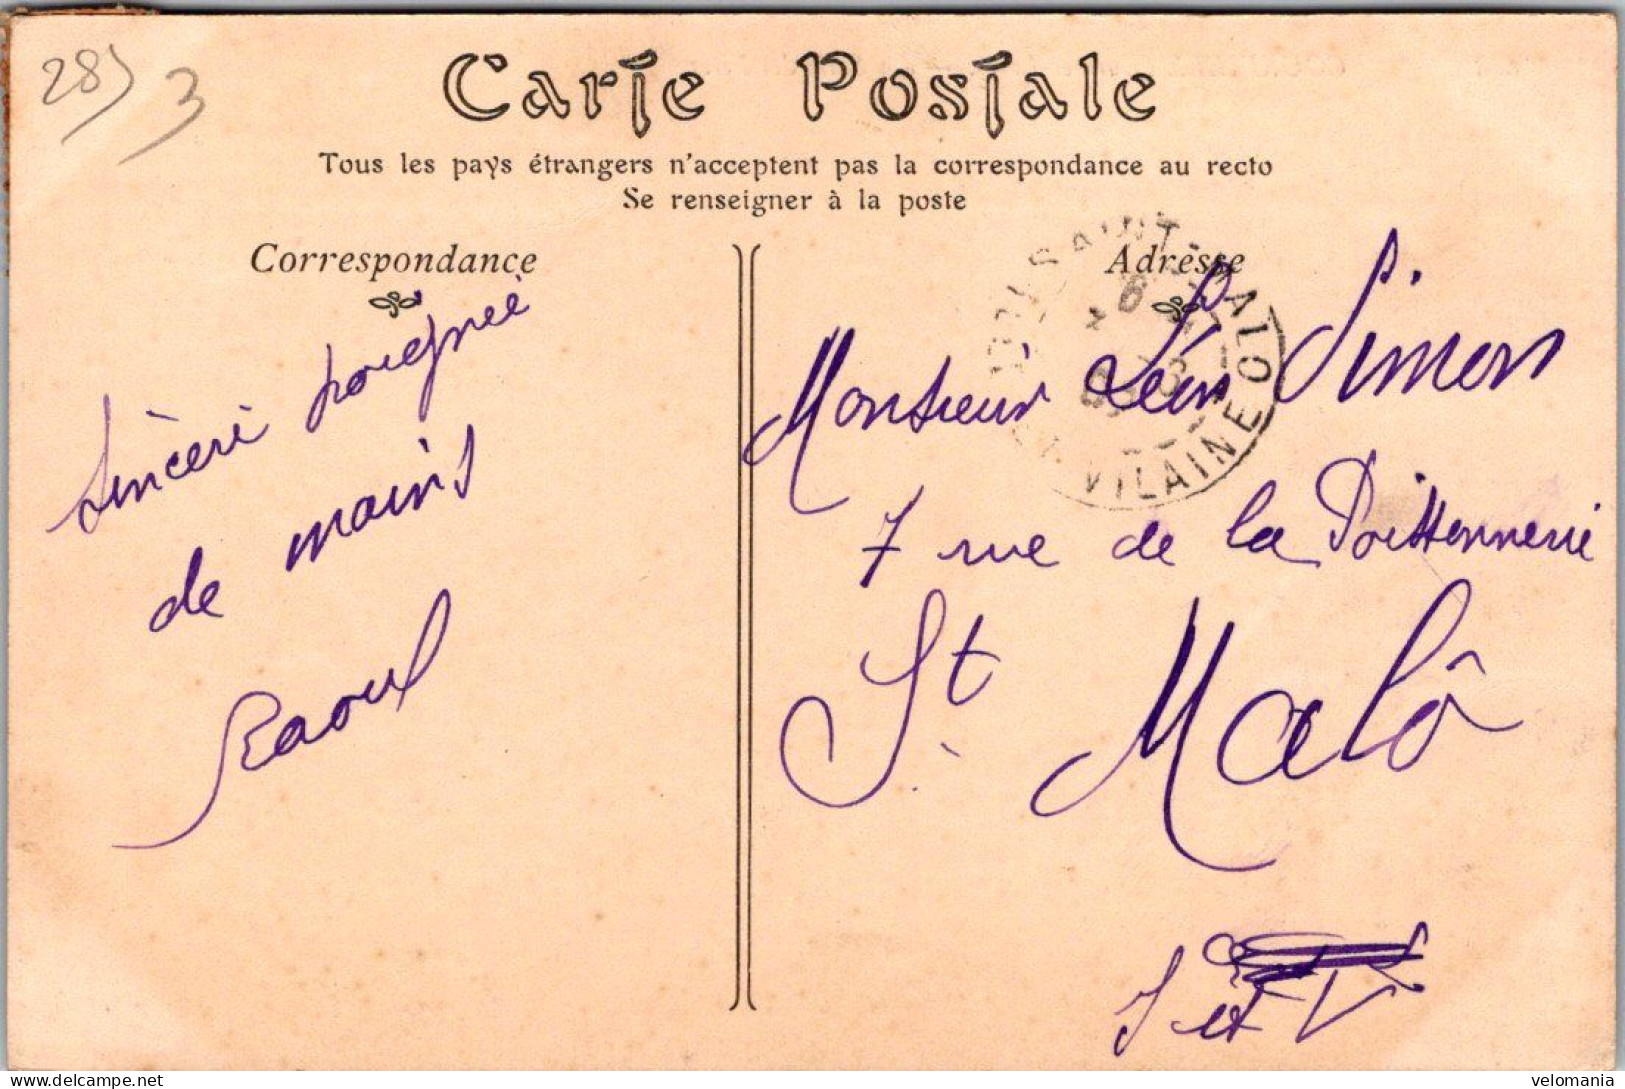 285 3
Carte Postale
Tous les pays étrangers n'acceptent pas la correspondance au recto
Se renseigner à la poste
Correspondance
Sincère poignée
de mains
Raoul
Adresse
SAINT-MALO
VILAINE
Monsieur Léon Simon
7 rue de la Poissonnerie
St Malô
I et V
www.delcampe.net
velomania